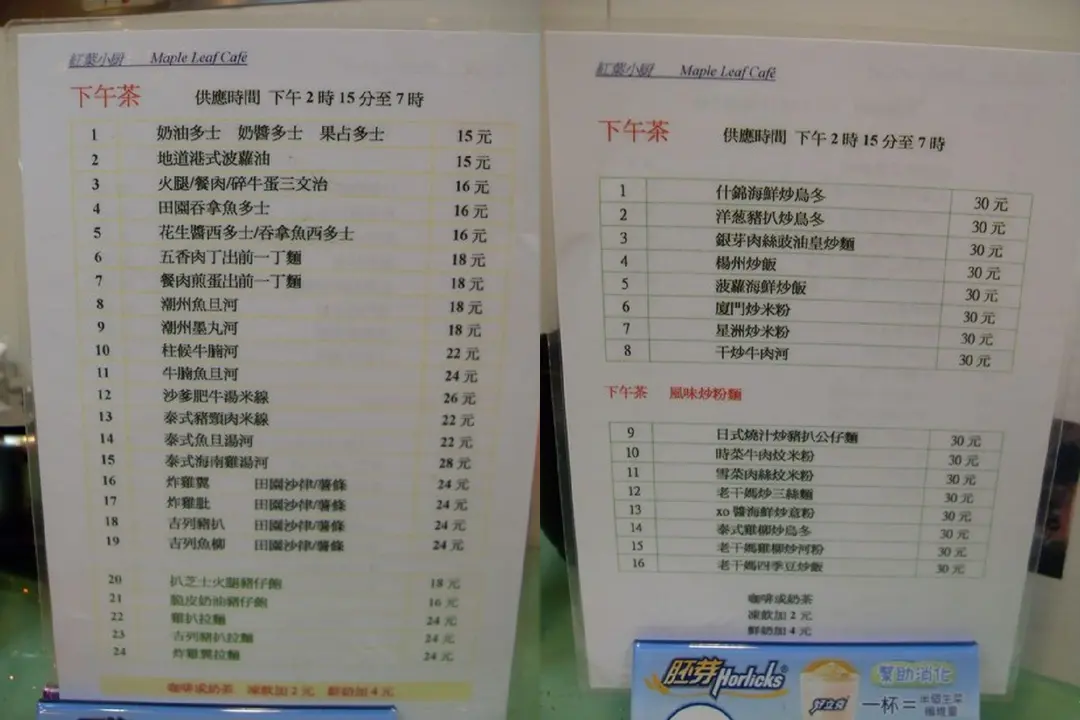 紅葉小厨 Maple Leaf Café
下午茶 供應時間 下午2時15分至7時
1 奶油多士 奶醬多士 果占多士 15元
2 地道港式波蘿油 15元
3 火腿/餐肉/碎牛蛋三文治 16元
4 田園吞拿魚多士 16元
5 花生醬西多士/吞拿魚西多士 16元
6 五香肉丁出前一丁麵 18元
7 餐肉煎蛋出前一丁麵 18元
8 潮州魚旦河 18元
9 潮州墨丸河 18元
10 柱候牛腩河 22元
11 牛腩魚旦河 24元
12 沙爹肥牛湯米線 26元
13 泰式豬頸肉米線 22元
14 泰式魚旦湯河 22元
15 泰式海南雞湯河 28元
16 炸雞翼 田園沙律/薯條 24元
17 炸雞肶 田園沙律/薯條 24元
18 吉列豬扒 田園沙律/薯條 24元
19 吉列魚柳 田園沙律/薯條 24元
20 扒芝士火腿豬仔飽 18元
21 脆皮奶油豬仔飽 16元
22 雞扒拉麵 24元
23 吉列豬扒拉麵 24元
24 炸雞翼拉麵 24元
咖啡或奶茶 凍飲加2元 鮮奶加4元
紅葉小厨 Maple Leaf Café
下午茶 供應時間 下午2時15分至7時
1 什錦海鮮炒烏冬 30元
2 洋葱豬扒炒烏冬 30元
3 銀芽肉絲豉油皇炒麵 30元
4 楊州炒飯 30元
5 波蘿海鮮炒飯 30元
6 廈門炒米粉 30元
7 星洲炒米粉 30元
8 干炒牛肉河 30元
下午茶 風味炒粉麵
9 日式燒汁炒豬扒公仔麵 30元
10 時菜牛肉炆米粉 30元
11 雪菜肉絲炆米粉 30元
12 老干媽炒三絲麵 30元
13 xo醬海鮮炒意粉 30元
14 泰式雞柳炒烏冬 30元
15 老干媽雞柳炒河粉 30元
16 老干媽四季豆炒飯 30元
咖啡或奶茶
凍飲加2元
鮮奶加4元
胚芽Horlicks®
幫助消化
好立克
一杯=